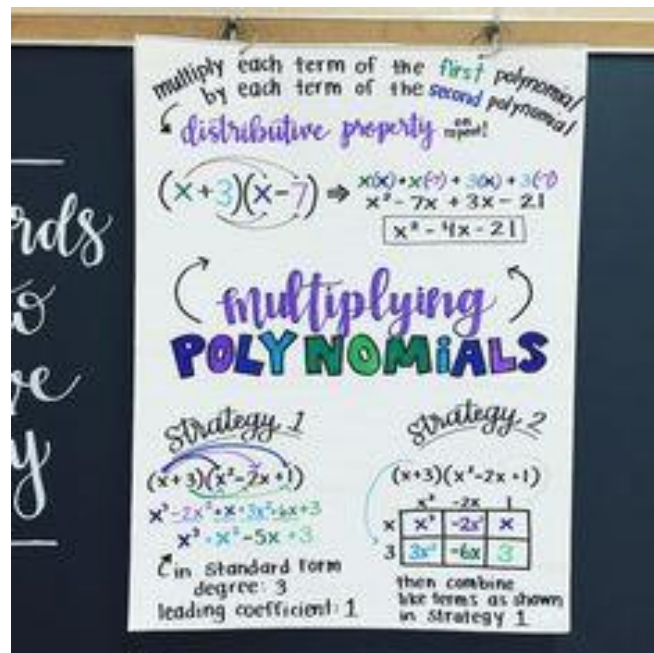 multiply each term of the first polynomial
by each term of the second polynomial
distributive property on repeat!
(x+3)(x-7) ⇒ x(x)+x(-7)+3(x)+3(-7)
x²-7x+3x-21
x²-4x-21
multiplying
POLYNOMiALS
Strategy 1
(x+3)(x²-2x+1)
x³-2x²+x+3x²-6x+3
x³+x²-5x+3
in standard form
degree: 3
leading coefficient: 1
Strategy 2
(x+3)(x²-2x+1)
x² -2x 1
x x³ -2x² x
3 3x² -6x 3
then combine
like terms as shown
in Strategy 1